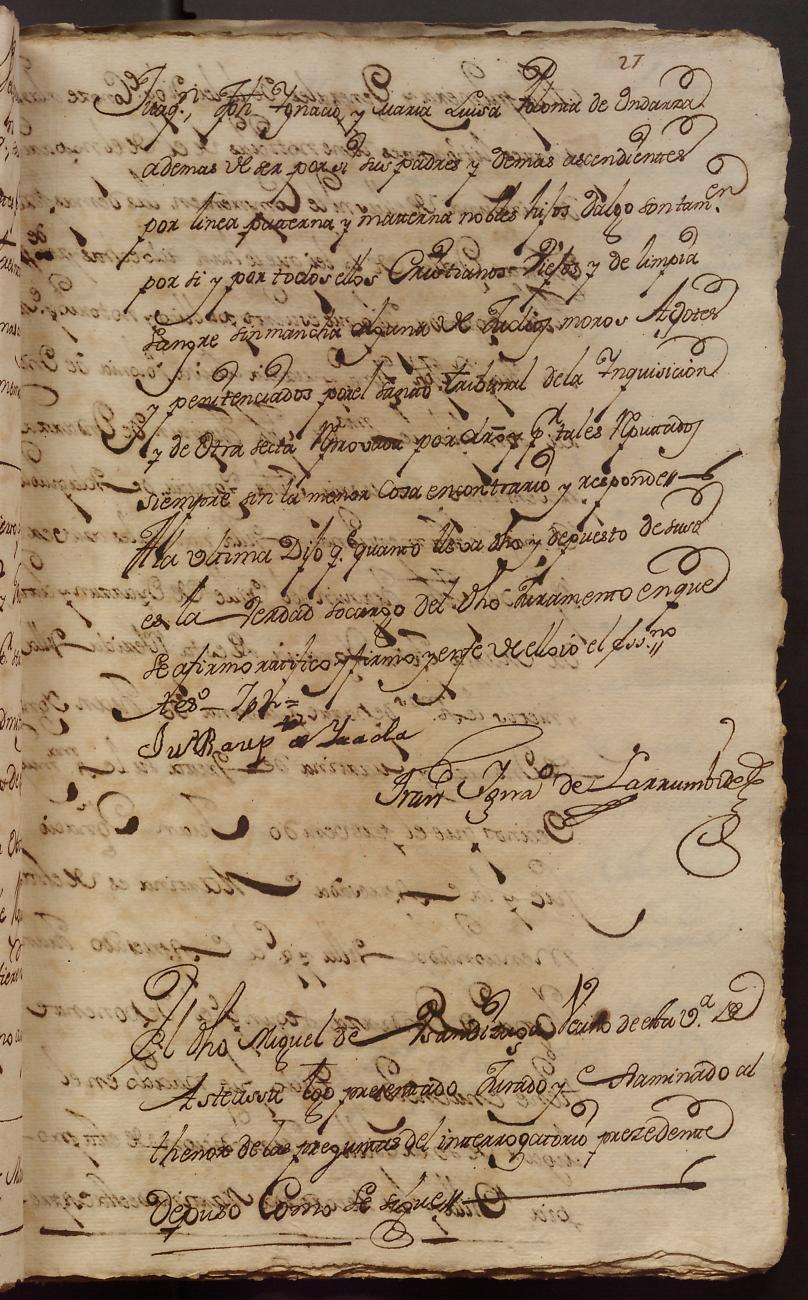 27
Juaqn., Jph. Ygnacio, y Maria Luisa Polonia de Yndarza
ademas de ser por si sus padres y demas ascendientes
por linea paterna y materna nobles hijos dalgo son tamen.
por si y por todos ellos Cristianos Viejos y de limpia
Sangre sin mancha alguna de Judios, moros Agotes
y penitenciados por el Sagrado tribunal de la Ynquisicion
y de Otra secta Reprovada por dro. y pr. tales Reputados
siempre sin la menor Cosa en contrario y responde
A la ultima Dijo q. quanto lleva dho y depuesto de suso
es la Verdad so cargo del dho Juramento en que
se afirmo ratifico y firmo y en fe de ello io el essno.
Juo Baup de
Frano Ygnao de Larrumbide
El dho Miguel de Vecino de esta va. de
Asteassu tgo presentado Jurado y Examinado al
thenor de las preguntas del interrogatorio prezedente
depuso Como se sigue